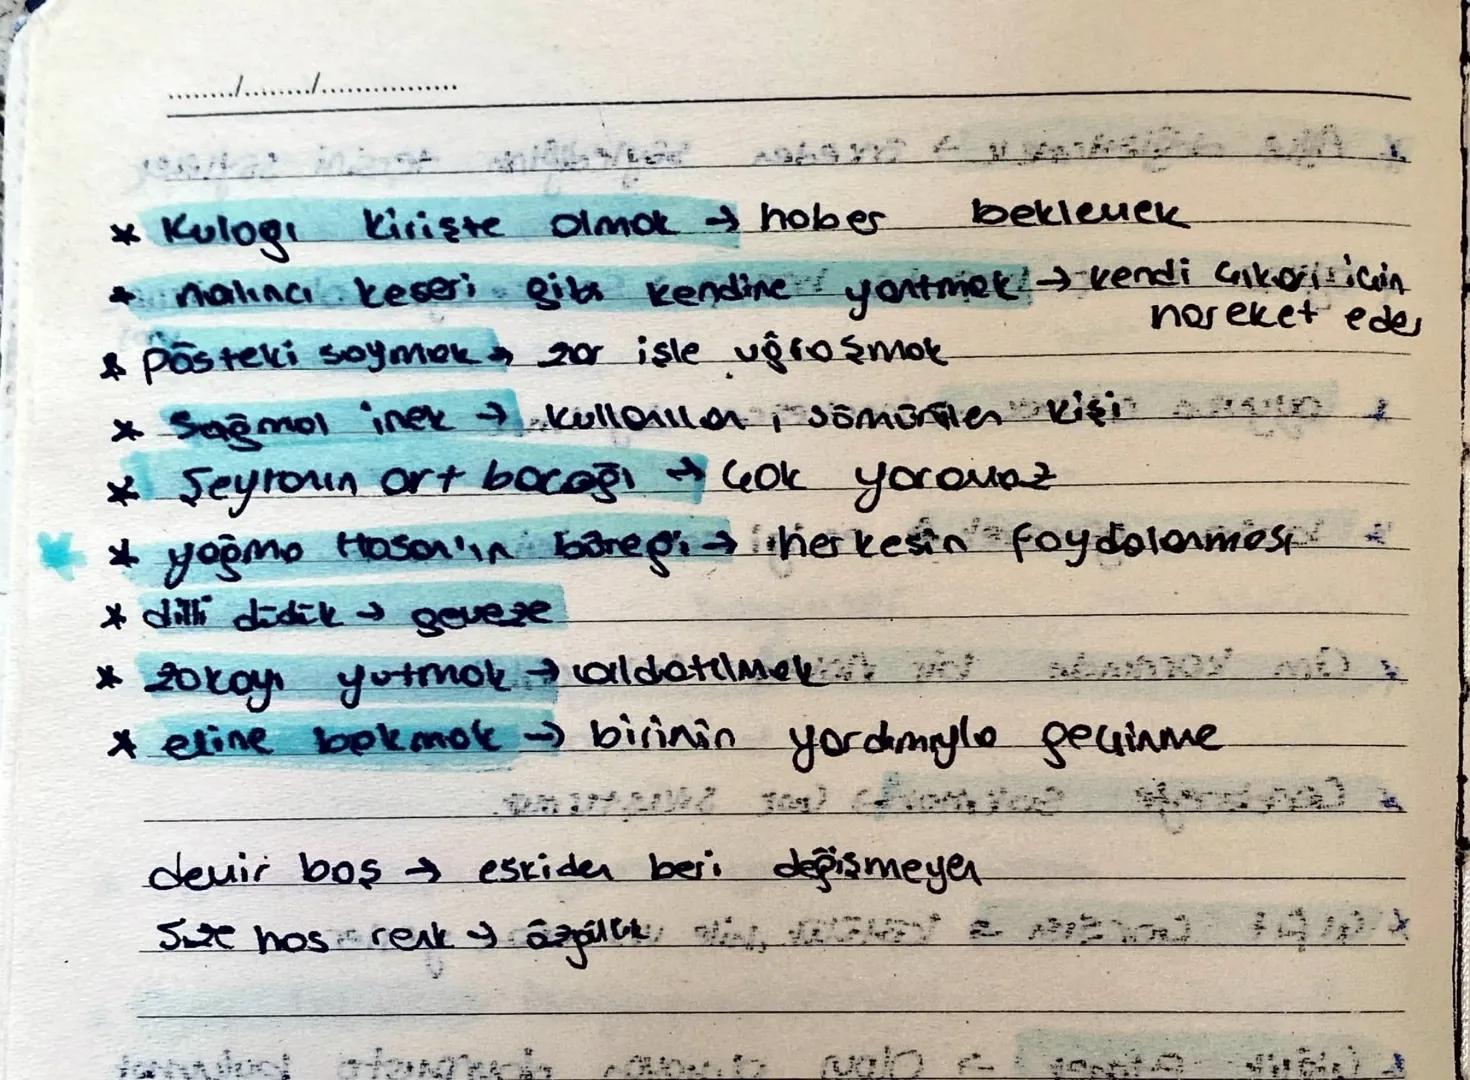 ......../......../................
* Kulağı kirişte olmak → haber beklemek
* nalıncı keseri gibi kendine yontmak → kendi çıkarı için
hareket eder
* pösteki saymak → zor işle uğraşmak
* Sağmal inek → kullanılan, sömürülen kişi
* Şeytanın art bacağı → çok yaramaz
* yağma Hasan'ın böreği → herkesin faydalanması
* dilli düdük → geveze
* zokayı yutmak → aldatılmak
* eline bakmak → birinin yardımıyla geçinme
demir baş → eskiden beri değişmeyen
Size has renk → özgüllük